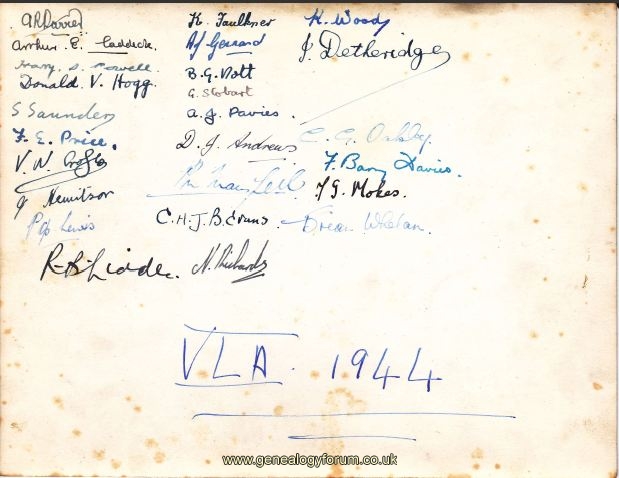 A R Davies
Arthur. E. Caddock.
Harry. S. Powell.
Donald. V. Hogg.
S Saunders
F. E. Price.
V. N.
J Hewitson
Lewis
R-B Liddle.
K. Faulkner
A J Gerrard
B. G. Nott
G. Stobart
A. J. Davies.
D. J. Andrews
C. H. J. B. Evans.
N. Richards
K. Woody
J. Detheridge
C. G. Oakley
F. Barry Davies.
J G. Mokes.
Brean Whelan.
VLA. 1944
www.genealogyforum.co.uk